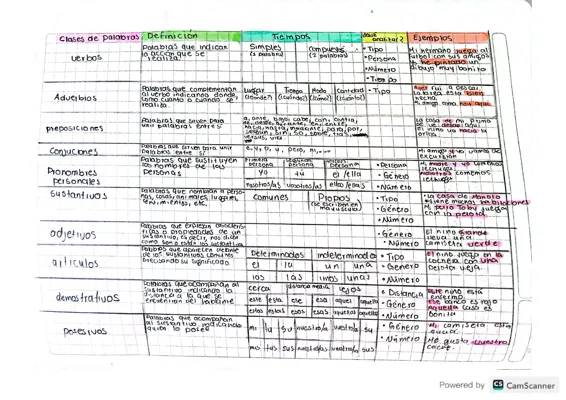 Clases de palabras Definición Tiempos ¿Qué analizar? Ejemplos
verbos
Palabras que indican
la acción que se
realiza.
Simples
(1 palabra)
compuestos
(2 palabras)
• Tipo
• Persona
• Número
• Tiempo
Mi hermano juega al
futbol con sus amigos
he pintado un
dibujo muy bonito
Adverbios
Palabras que complementan
al verbo indicando donde,
como cuanto o cuando se
realiza
Lugar
(¿donde?)
Tiempo
(¿cuándo?)
Modo
(¿cómo?)
Cantidad
(¿cuánto?)
• Tipo
Ayer fui a pescar
La tarea está bien
hecha
preposiciones
Palabras que sirven para
unir palabras entre sí
a, ante, bajo, cabe, con, contra,
de, desde, durante, en, entre,
hacia, hasta, mediante, para, por,
según, sin, so, sobre, tras,
versus, vía
La casa de mi primo
El niño va hacia la
Conjuciones
Palabras que sirven para unir
palabras entre sí
e, y, o, u, pero, ni, ...
Mi amigo y yo vamos de
excursión
Pronombres
personales
Palabras que sustituyen
los nombres de las
personas
Primera
persona
Segunda
persona
Tercera
persona
yo tú el /ella
nosotros/as vosotros/as ellos/ellas
• Persona
• Género
• Número
nosotros comemos
lechuga
Sustantivos
Palabras que nombran a perso-
nas, cosas, animales, lugares,
sentimientos, etc.
Comunes
Propios
(se escriben en
mayúscula)
• Tipo
• Género
• Número
• La casa de Manolo
tiene muchas habitaciones
Mi perro Toby juega
con la pelota
adjetivos
• Género
• Número
El niño grande
lleva una
camiseta verde
artículos
Palabras que aparecen delante
de los sustantivos comunes
precisando su significado
Determinados indeterminado
el la un una
los las unos unas
• Tipo
• Genero
• Número
El niño juega en la
cocina con una
pelota vieja
demostrativos
Palabras que acompañan al
sustantivo indicando la
distancia a la que se
encuentran del hablante
cerca distancia media lejos
este esta ese esa aquel aquella
estos estas esos esas aquellos aquellas
• Distancia
• Género
• Número
este niño está
enfermo
ese banco es rojo
aquella casa es
bonita
posesivos
Palabras que acompañan
al sustantivo indicando
quién lo posee
mi tu su nuestro/a vuestro/a su
mis tus sus nuestros/as vuestros/as sus
• Género
• Número
Mi camiseta está
sucia
Me gusta vuestro
coche
Powered by CS CamScanner